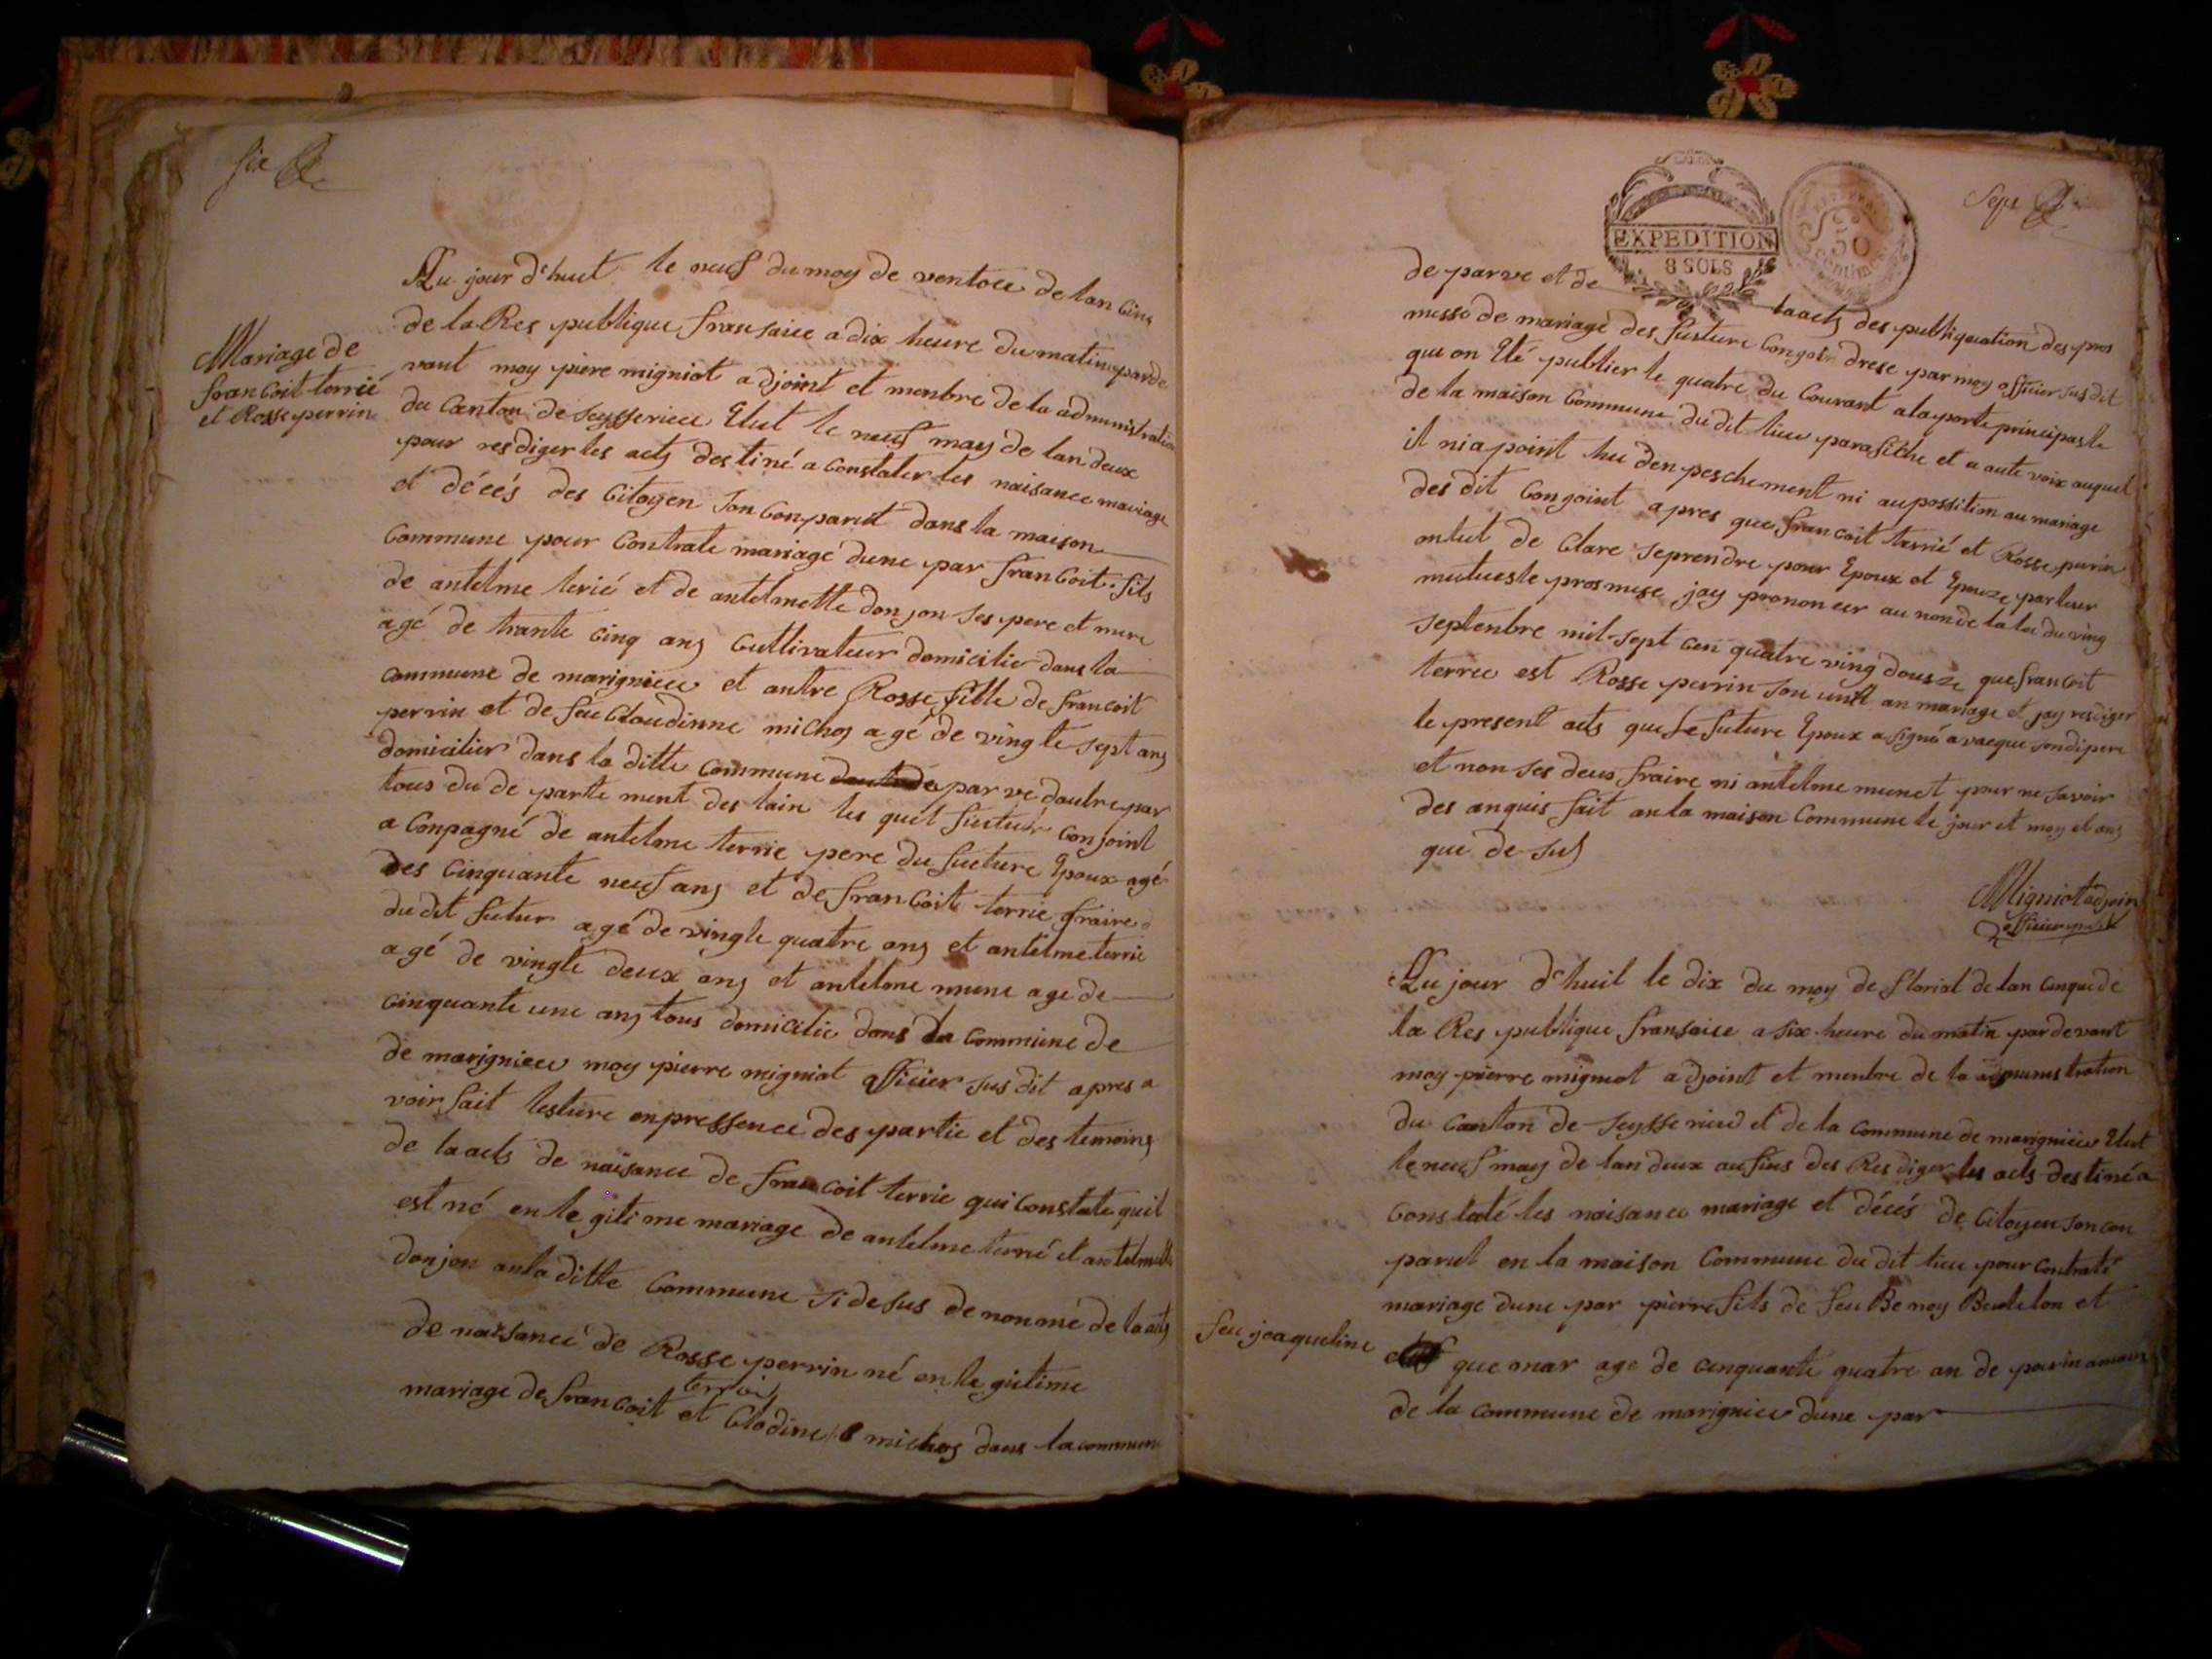 six
Mariage de
francoit terrié
et Rosse perrin
Au jour d'huit le neuf du moy de ventose de lan cinq
de la Res publique fransaice a dix heure du matin parde
vant moy piere migniot adjoint et menbre de la administration
du Canton de seysserieu Elut le neuf may de lan deux
pour resdiger les acts destiné a Constater les naisance mariage
et décés des Citoyen son Conparut dans la maison
Commune pour Contrate mariage dune par francoit fils
de antelme terié et de antelmette donjon ses pere et mere
agé de trante cinq ans Cultivateur domicilié dans la
commune de marignieu et autre Rosse fille de francoit
perrin et de feu Cloudinne michos agé de vingte sept ans
domicilier dans la ditte Commune par ve dautre par
tous du departe ment des lain les quel fuetur Conjoint
a Conpagné de antelme terrie pere du fueture Epoux agé
des Cinquante neuf ans et de francoit terrie fraire
du dit futur agé de vingte quatre ans et antelme terrie
agé de vingte deux ans et antelme mune age de
cinquante une ans tous domicilie dans la Commune de
de marignieu moy pierre migniot officier sus dit apres a
voir fait lesture enpressence des partie et des temoins
de la acts de naisance de francoit terrie qui Constate quil
est né en le gitime mariage de antelme terrié et antelmette
donjon anla ditte Commune si desus denonmé de la acts
de naisance de Rosse perrin né en le gitime
mariage de francoit et Clodine michos dans la commune
Sept
EXPEDITION
8 SOLS
50
centimes
de parve et de la acts des publiquation des pros
messe de mariage des fusture Conjoint drese par moy officier sus dit
que on Eté publier le quatre du Courant a la porte principasle
de la maison Commune du dit lieu par afiche et a aute voix auquel
il nia point hu denpeschement ni aupossition au mariage
des dit Conjoint apres que francoit terrié et Rosse perin
ontut de Clare seprendre pour Epoux et Epouze par leur
mutuesle prosmese jay prononcer au non de la loi du ving
septenbre mil sept cen quatre ving dousze que francoit
terrie est Rosse perrin son unit an mariage et jay resdiger
le present acts que Le future Epoux a signé avaeque sondipere
et non ses deux fraire ni antelme munet pour ne savoir
des anquis fait anla maison Commune le jour et moy et ans
que de sus
Migniot adjoin
officier public
Au jour d'huil le dix du moy de florial de lan cinque de
la Res publique fransaice a six heure du matin pardevant
moy pierre migniot adjoint et menbre de la administration
du Canton de seysserieu et de la Commune de marignieu Elut
le neuf may de lan deux au fins des Resdiger les acts destiné a
Constaté les naisance mariage et décés de Citoyen son con
parut en la maison Commune du dit lieu pour Contraté
mariage dune par pierre fils de feu Benoy Berlelon et
feu jeaqueline
que mar age de cinquante quatre an de
de la Commune de marignieu dune par